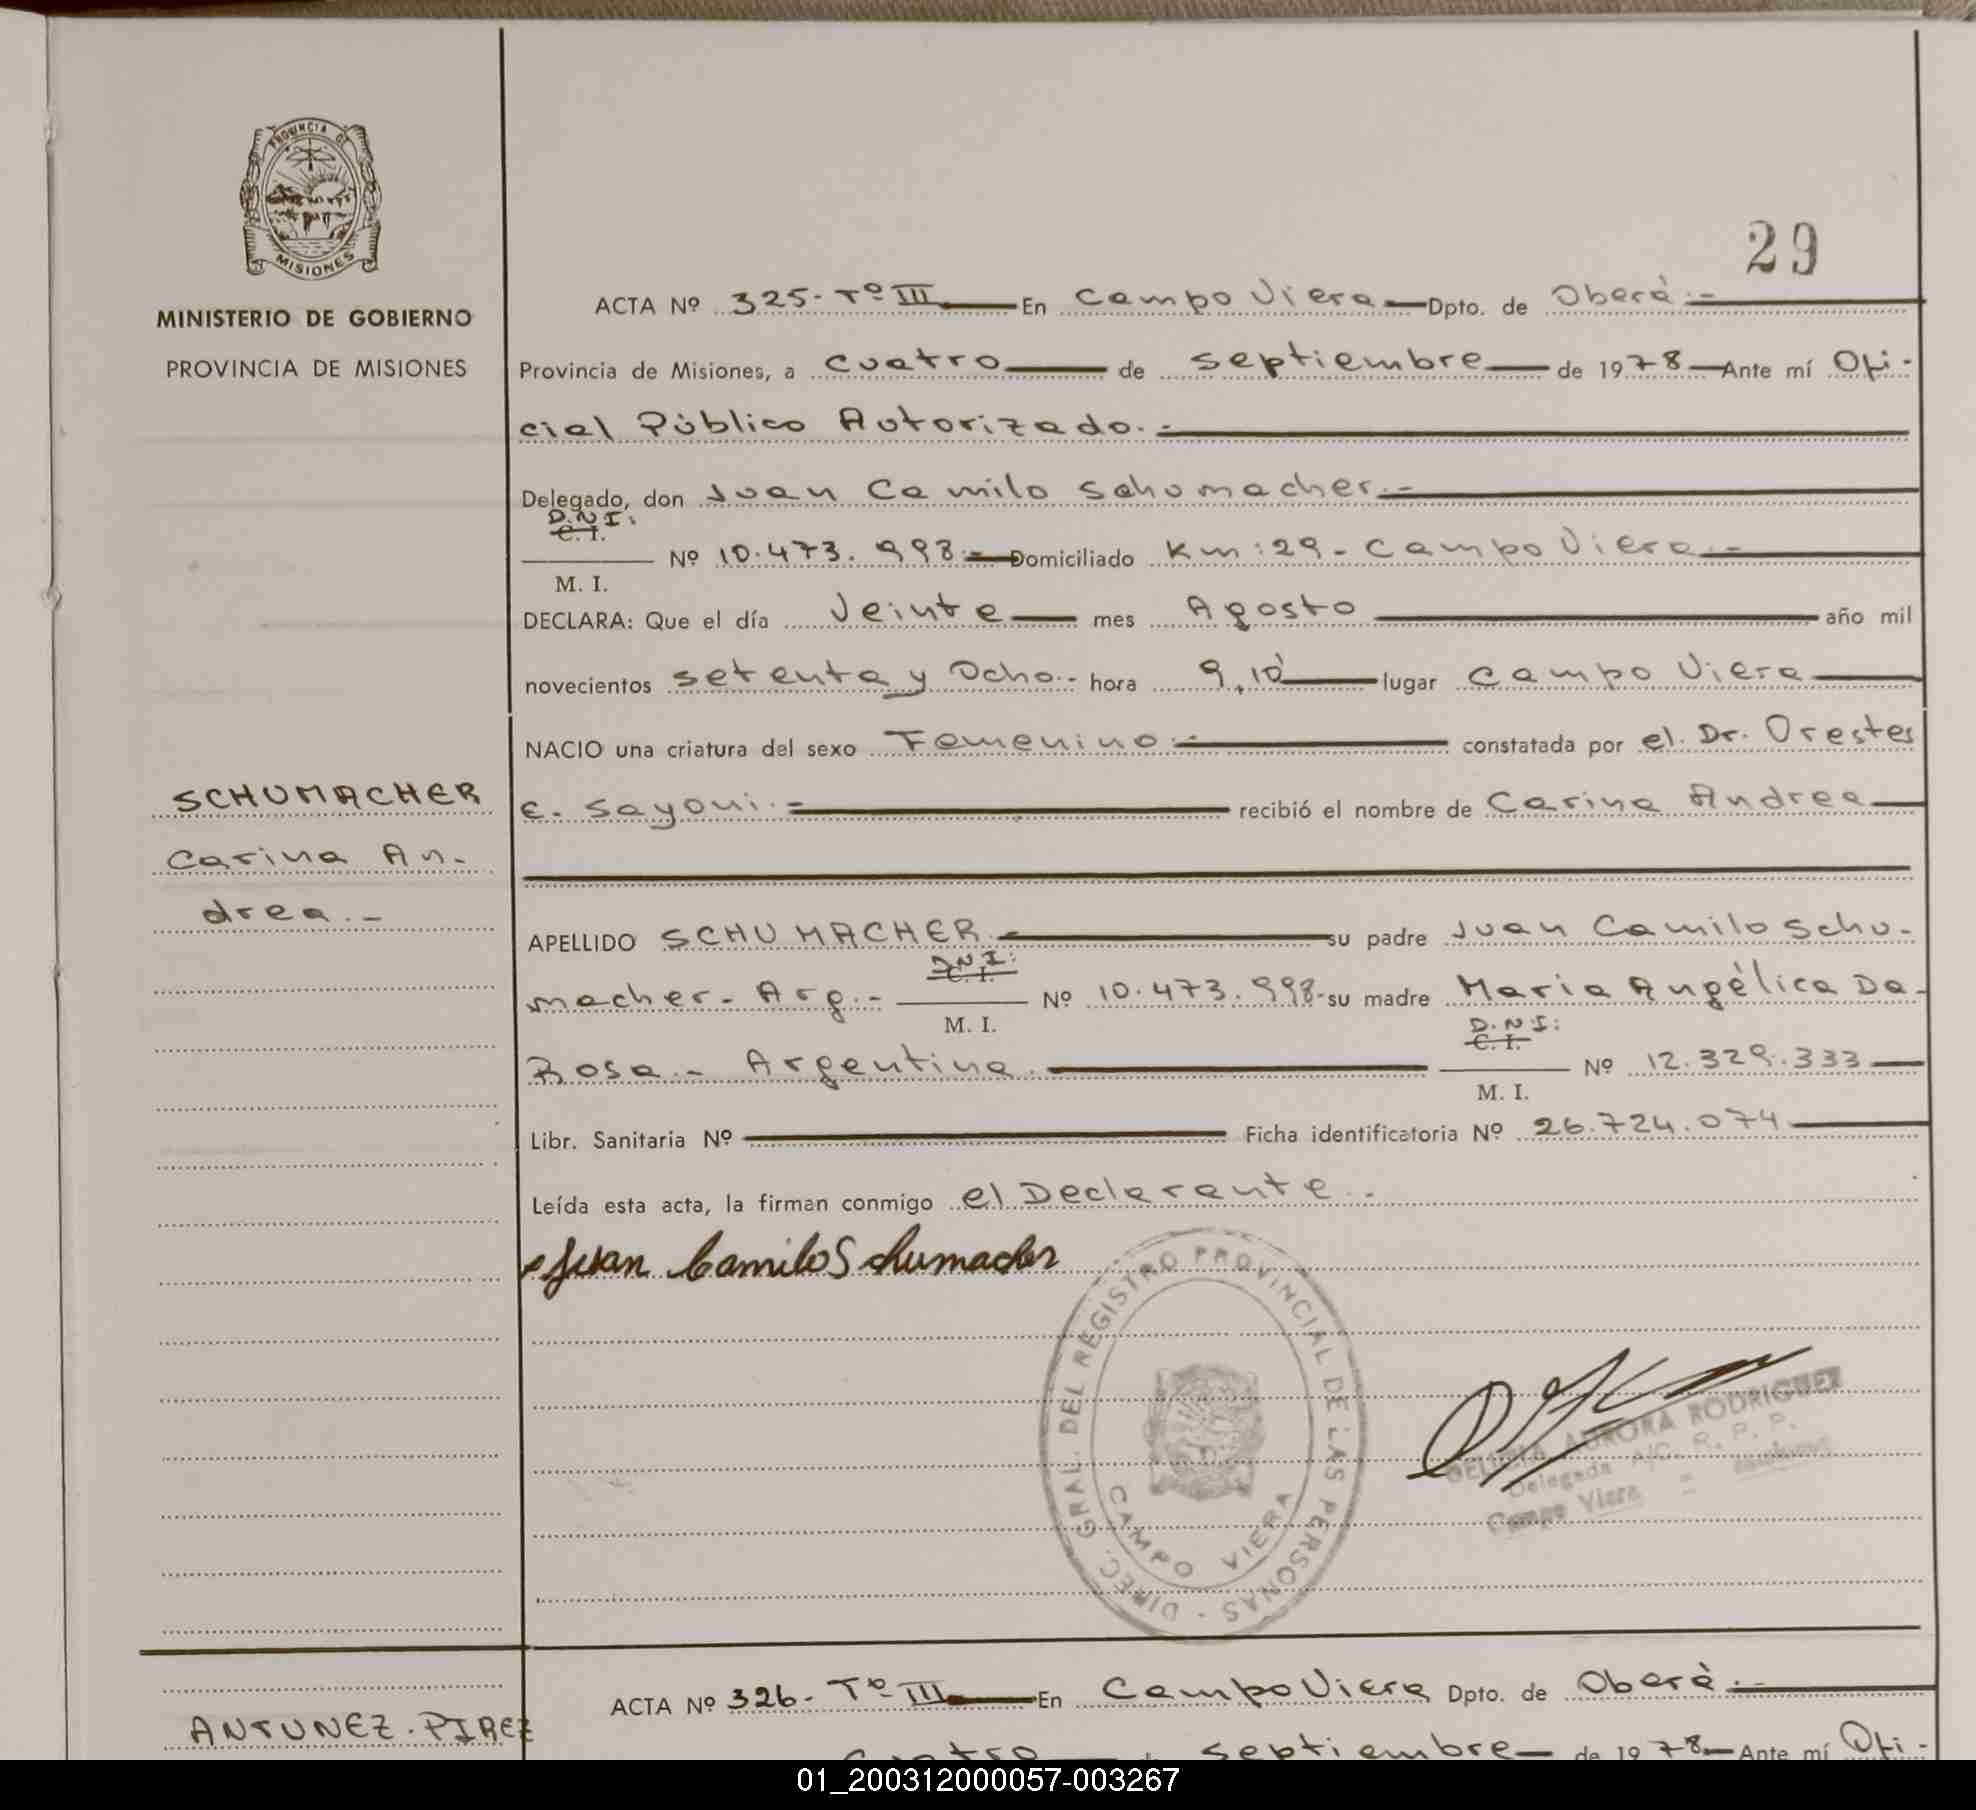 29
PROVINCIA DE
MISIONES
MINISTERIO DE GOBIERNO
PROVINCIA DE MISIONES
ACTA Nº 325- Tº III En Campo Viera Dpto. de Oberá.-
Provincia de Misiones, a cuatro de septiembre de 1978 Ante mí Ofi-
cial Público Autorizado.-
Delegado, don Juan Camilo Schumacher.-
D.N.I:
C. I.
M. I.
Nº 10.473.998.- Domiciliado Km: 29- Campo Viera.-
DECLARA: Que el día Veinte mes Agosto año mil
novecientos setenta y Ocho.- hora 9,10 lugar Campo Viera
NACIO una criatura del sexo Femenino.- constatada por el Dr. Orestes
E. Sayoui.- recibió el nombre de Carina Andrea
SCHUMACHER
Carina An-
drea.-
APELLIDO SCHUMACHER.- su padre Juan Camilo Schu-
D.N.I:
C. I.
macher- Arg.- Nº 10.473.998- su madre Maria Angélica Da-
M. I.
D.N.I:
C. I.
Rosa.- Argentina. Nº 12.329.333
M. I.
Libr. Sanitaria Nº Ficha identificatoria Nº 26.724.074
Leída esta acta, la firman conmigo el Declarante.-
Juan Camilo Schumacher
DIREC. GRAL. DEL REGISTRO PROVINCIAL DE LAS PERSONAS -
CAMPO VIERA
AURORA RODRIGUEZ
Delegada A/C. R. P. P.
Campo Viera =
ACTA Nº 326- Tº III En Campo Viera Dpto. de Oberá.-
ANTUNEZ.PIREZ
Cuatro de septiembre de 1978 Ante mí Ofi-
01_200312000057-003267